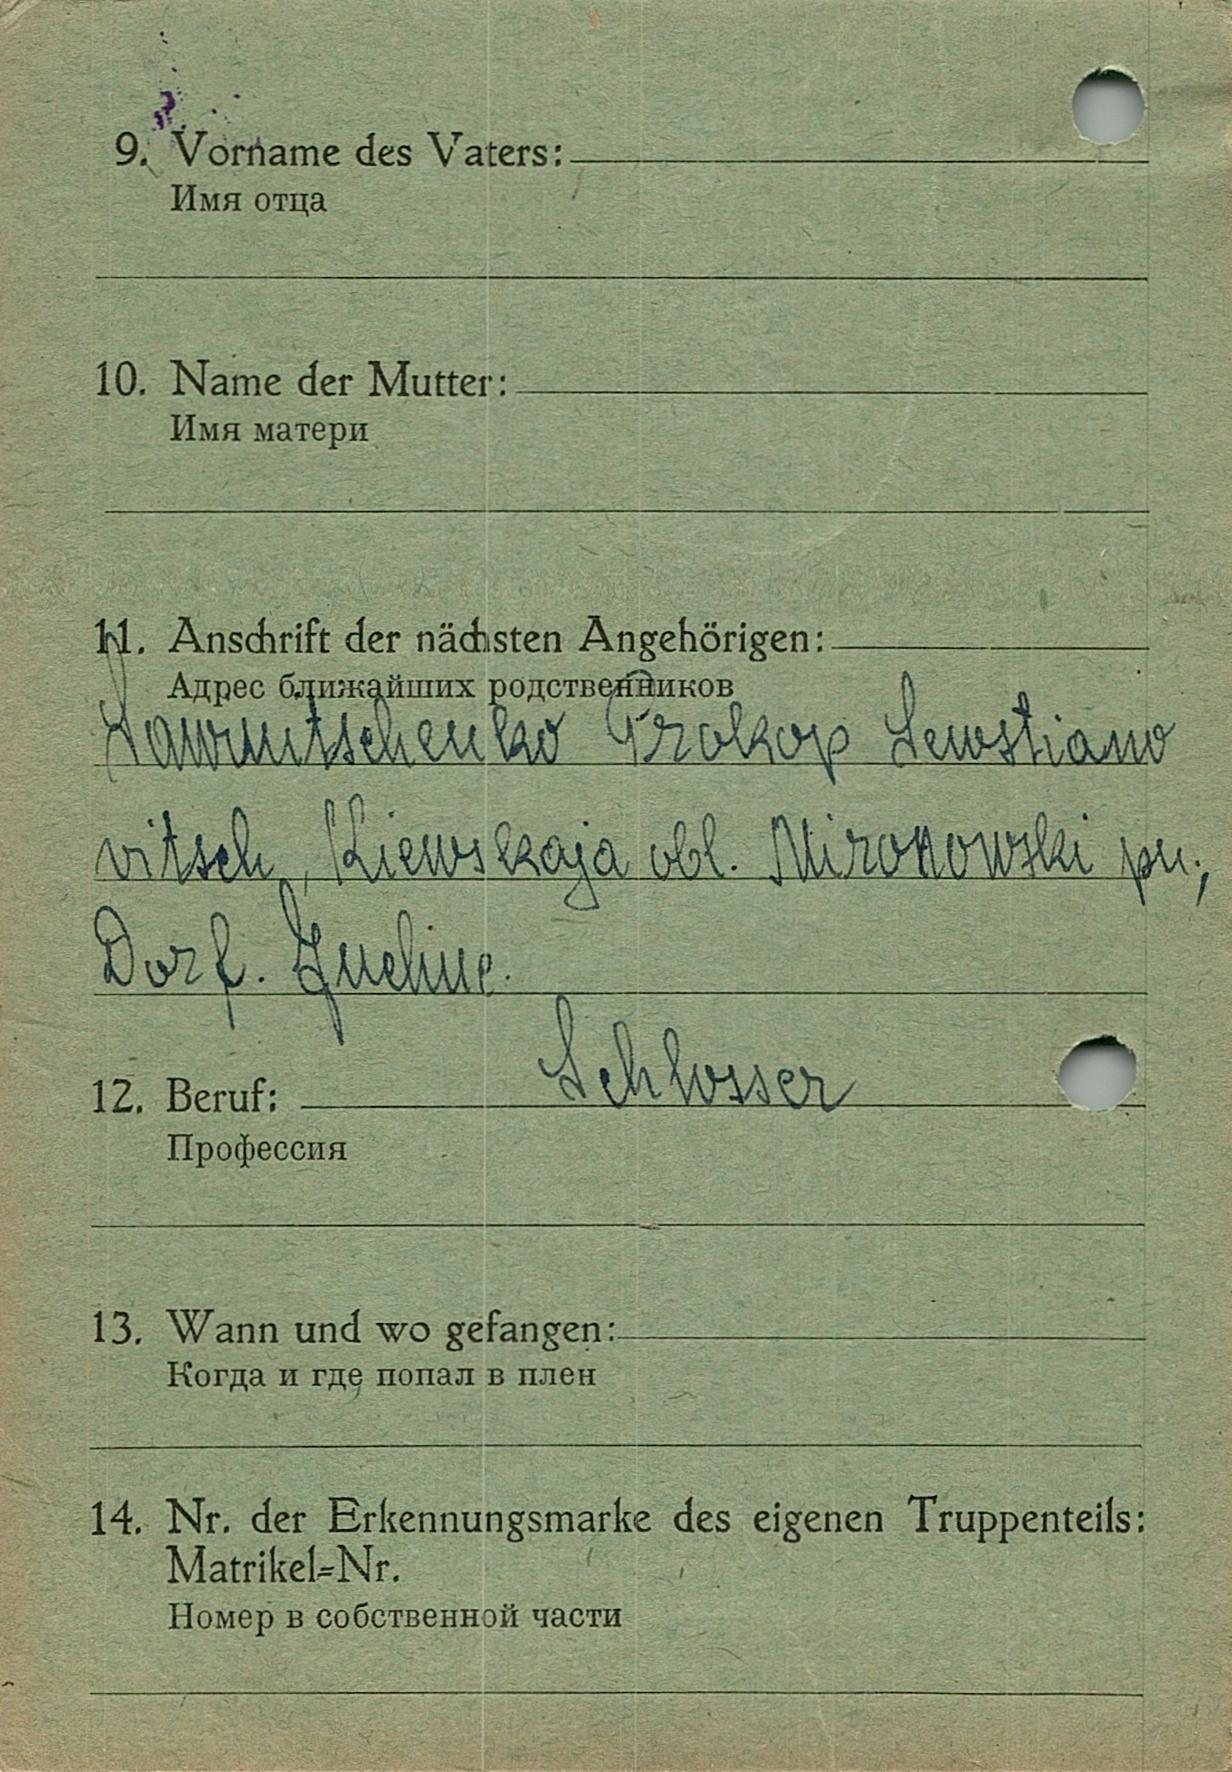 9. Vorname des Vaters:
Имя отца
10. Name der Mutter:
Имя матери
11. Anschrift der nächsten Angehörigen:
Адрес ближайших родственников
Prokop Sewostiano
vitsch, Kiewskaja obl. Mironowski
Dorf.
12. Beruf: Schlosser
Профессия
13. Wann und wo gefangen:
Когда и где попал в плен
14. Nr. der Erkennungsmarke des eigenen Truppenteils:
Matrikel=Nr.
Номер в собственной части